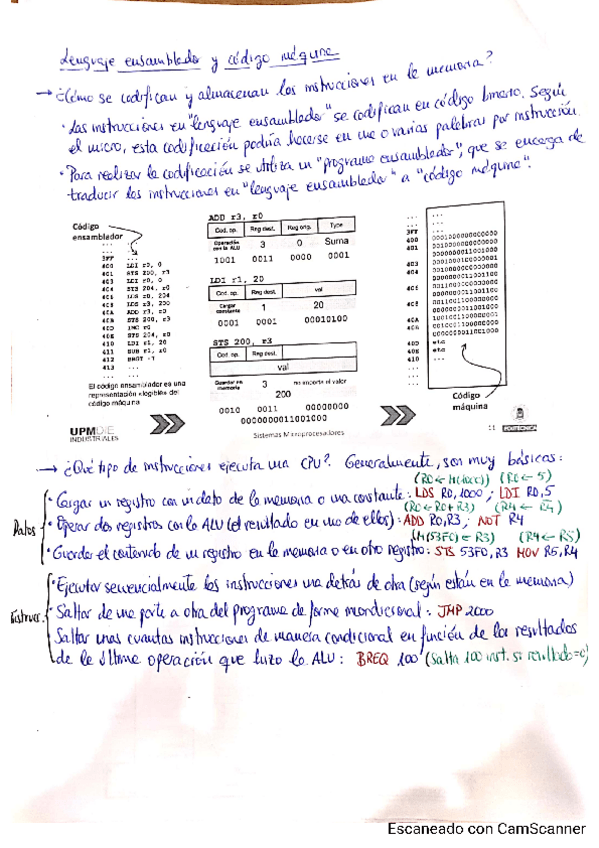 Lenguaje ensamblador y código máquina
→ ¿Cómo se codifican y almacenan las instrucciones en la memoria?
· Las instrucciones en "lenguaje ensamblador" se codifican en código binario. Según
el micro, esta codificación podría hacerse en una o varias palabras por instrucción.
· Para realizar la codificación se utiliza un "programa ensamblador", que se encarga de
traducir las instrucciones en "lenguaje ensamblador" a "código máquina".
Código
ensamblador
...
...
3FF ...
400 LDI r0, 0
401 STS 200, r3
403 LDI r0, 0
404 STS 204, r0
406 LDS r0, 204
408 LDS r3, 200
40A ADD r3, r0
40B STS 200, r3
40D INC r0
40E STS 204, r0
410 LDI r1, 20
411 SUB r1, r0
412
413 ...
El código ensamblador es una
representación «legible» del
código máquina
ADD r3, r0
Cod. op. Reg dest. Reg orig. Type
Operación
con la ALU 3 0 Suma
1001 0011 0000 0001
LDI r1, 20
Cod. op. Reg dest. val
Cargar
constante 1 20
0001 0001 00010100
STS 200, r3
Cod. op. Reg dest.
val
Guardar en
memoria 3 no importa el valor
200
0010 0011 00000000
0000000011001000
...
...
3FF ...
400
401
403
404
406
408
40A
40D etc
40E etc
410 ...
Código
máquina
UPM
INDUSTRIALES
Sistemas Microprocesadores
11
POLITÉCNICA
→ ¿Qué tipo de instrucciones ejecuta una CPU? Generalmente, son muy básicas:
(R0 ← M(1000)) (R0 ← 5)
Datos
· Cargar un registro con un dato de la memoria o una constante: LDS R0, 1000 ; LDI R0, 5
(R0 ← R0+R3) (R4 ← R4)
· Operar dos registros con la ALU (el resultado en uno de ellos): ADD R0, R3 ; NOT R4
(M(53F0) ← R3) (R4 ← R5)
· Guardar el contenido de un registro en la memoria o en otro registro: STS 53F0, R3 MOV R5, R4
Instrucc.
· Ejecutar secuencialmente las instrucciones una detrás de otra (según están en la memoria)
· Saltar de una parte a otra del programa de forma incondicional: JMP 2000
Saltar unas cuantas instrucciones de manera condicional en función de los resultados
de la última operación que hizo la ALU: BREQ 100 (Salta 100 inst. si resultado=0)
Escaneado con CamScanner